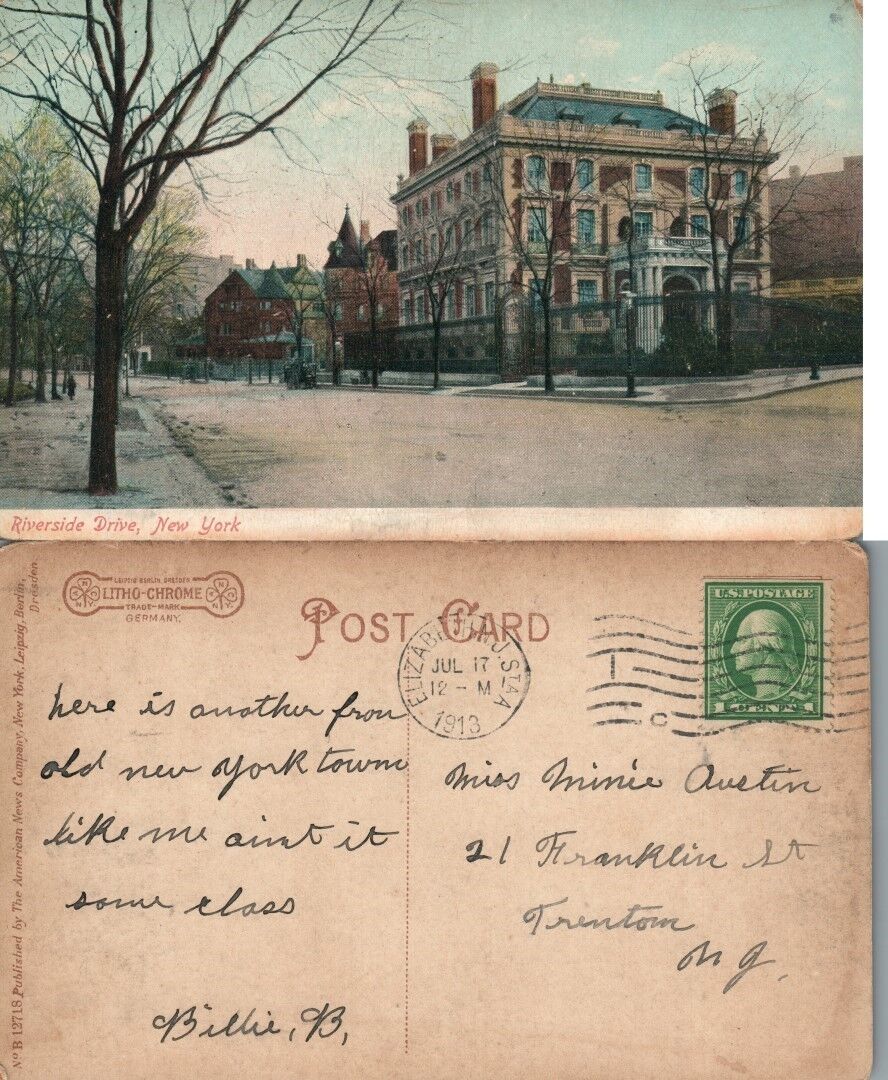 Riverside Drive, New York
LEIPZIG BERLIN DRESDEN
LITHO-CHROME
TRADE-MARK
GERMANY.
POST CARD
ELIZABETH, N.J. STA A
JUL 17
12 - M
1913
U.S. POSTAGE
1 CENT 1
C
No B 12718 Published by The American News Company, New York. Leipzig, Berlin,
Dresden.
here is another from
old new York town
like me aint it
some class
Billie, B,
Miss Minie Austin
21 Franklin St
Trenton
N J,